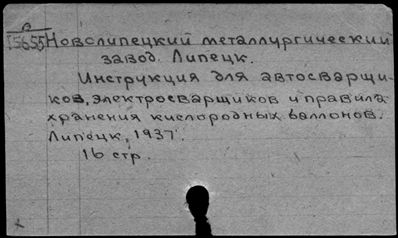 А
I 5655 Новолипецкий металлургический
завод. Липецк.
Инструкция для автосварщи-
ков, электросварщиков и правила
хранения кислородных баллонов.
Липецк, 1937.
16 стр.